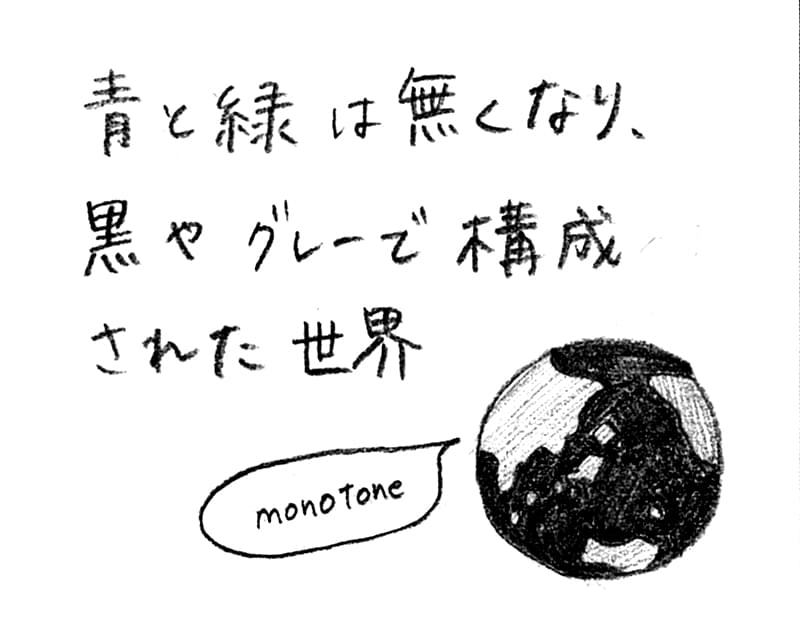 青と緑は無くなり、
黒やグレーで構成
された世界
monotone